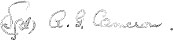 Sgd, A. G. Cameron.